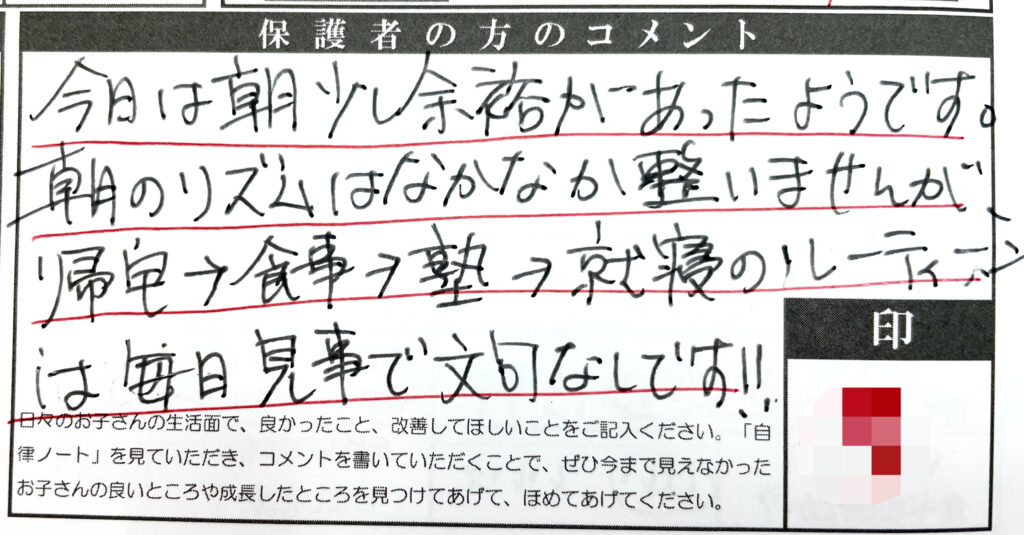 保護者の方のコメント
今日は朝少し余裕があったようです。
朝のリズムはなかなか整いませんが
帰宅→食事→塾→就寝のルーティーン
は毎日見事で文句なしです!!
印
日々のお子さんの生活面で、良かったこと、改善してほしいことをご記入ください。「自
律ノート」を見ていただき、コメントを書いていただくことで、ぜひ今まで見えなかった
お子さんの良いところや成長したところを見つけてあげて、ほめてあげてください。